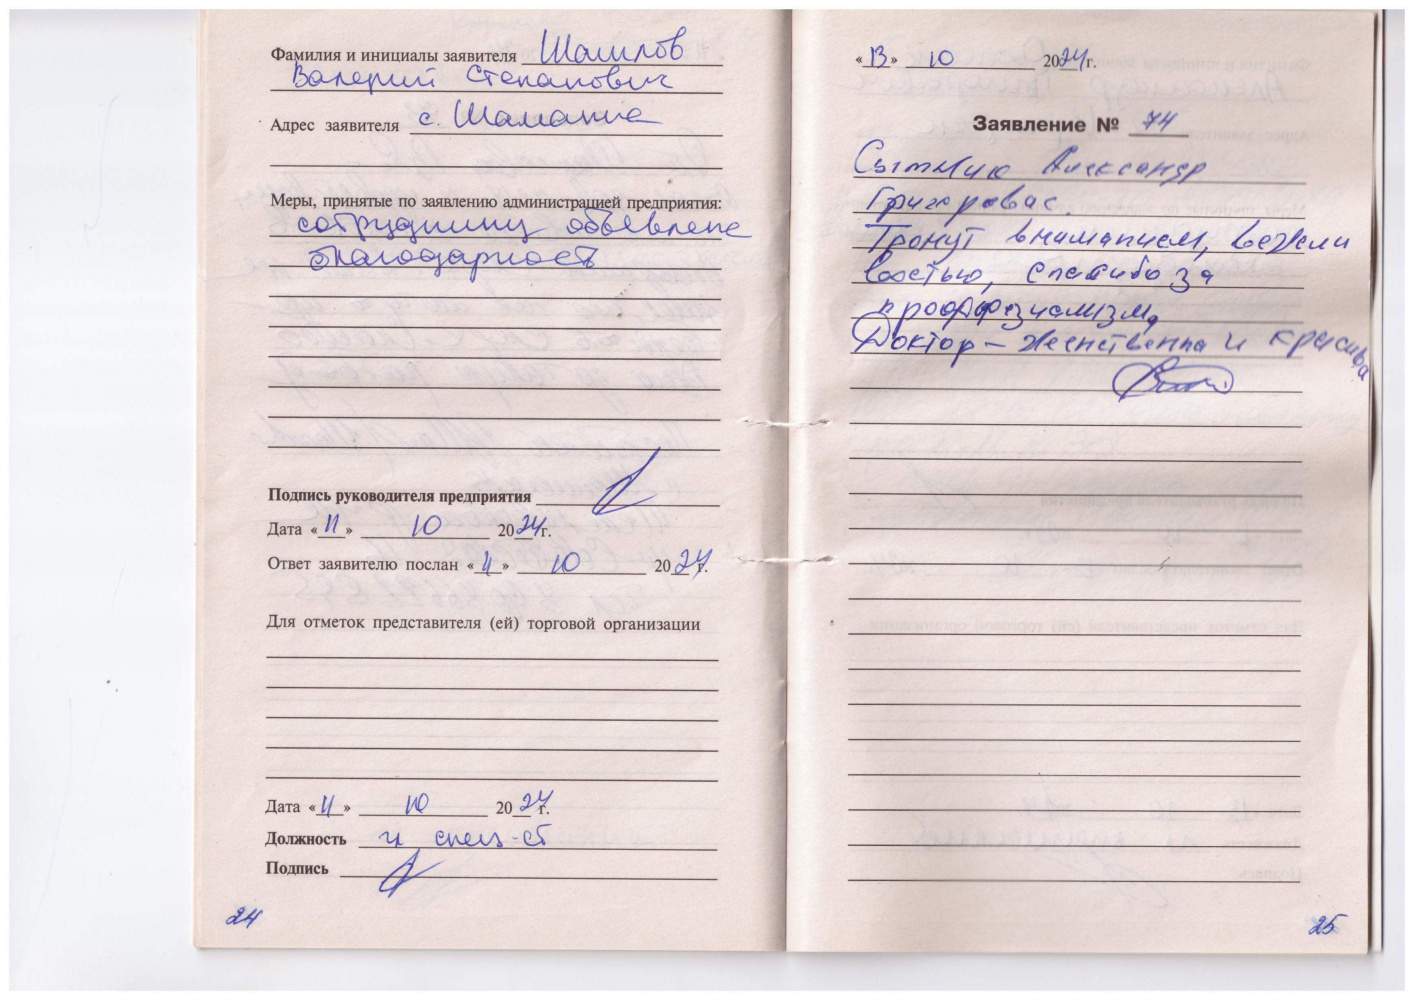 Фамилия и инициалы заявителя Шашлов
Валерий Степанович
Адрес заявителя с. Шаманка
Меры, принятые по заявлению администрацией предприятия:
сотруднику объевлена
благодарность
Подпись руководителя предприятия
Дата «11» 10 2024 г.
Ответ заявителю послан «11» 10 2024 г.
Для отметок представителя (ей) торговой организации
Дата «11» 10 2024 г.
Должность гл спец-ст
Подпись
24
«13» 10 2024 г.
Заявление № 74
Александр
Тронут вниманием, вежли
востью, спасибо за
Доктор – женственна и красива
25